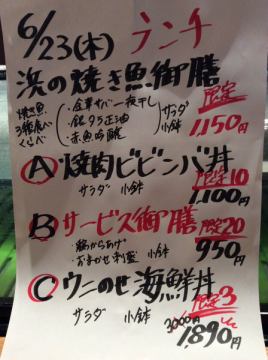 6/23(木) ランチ
浜の焼き魚御膳
焼魚3種食べくらべ
・金華サバ一夜干し
・銀タラ正油
・赤魚吟醸
サラダ
小鉢
限定
1,150円
Ⓐ焼肉ビビンバ丼
サラダ 小鉢
限定10
1,100円
Ⓑサービス御膳
限定20
・鶏からあげ
・おまかせ刺盛
サラダ
小鉢
950円
Ⓒウニのせ海鮮丼
サラダ 小鉢
限定3
3000円
1,890円